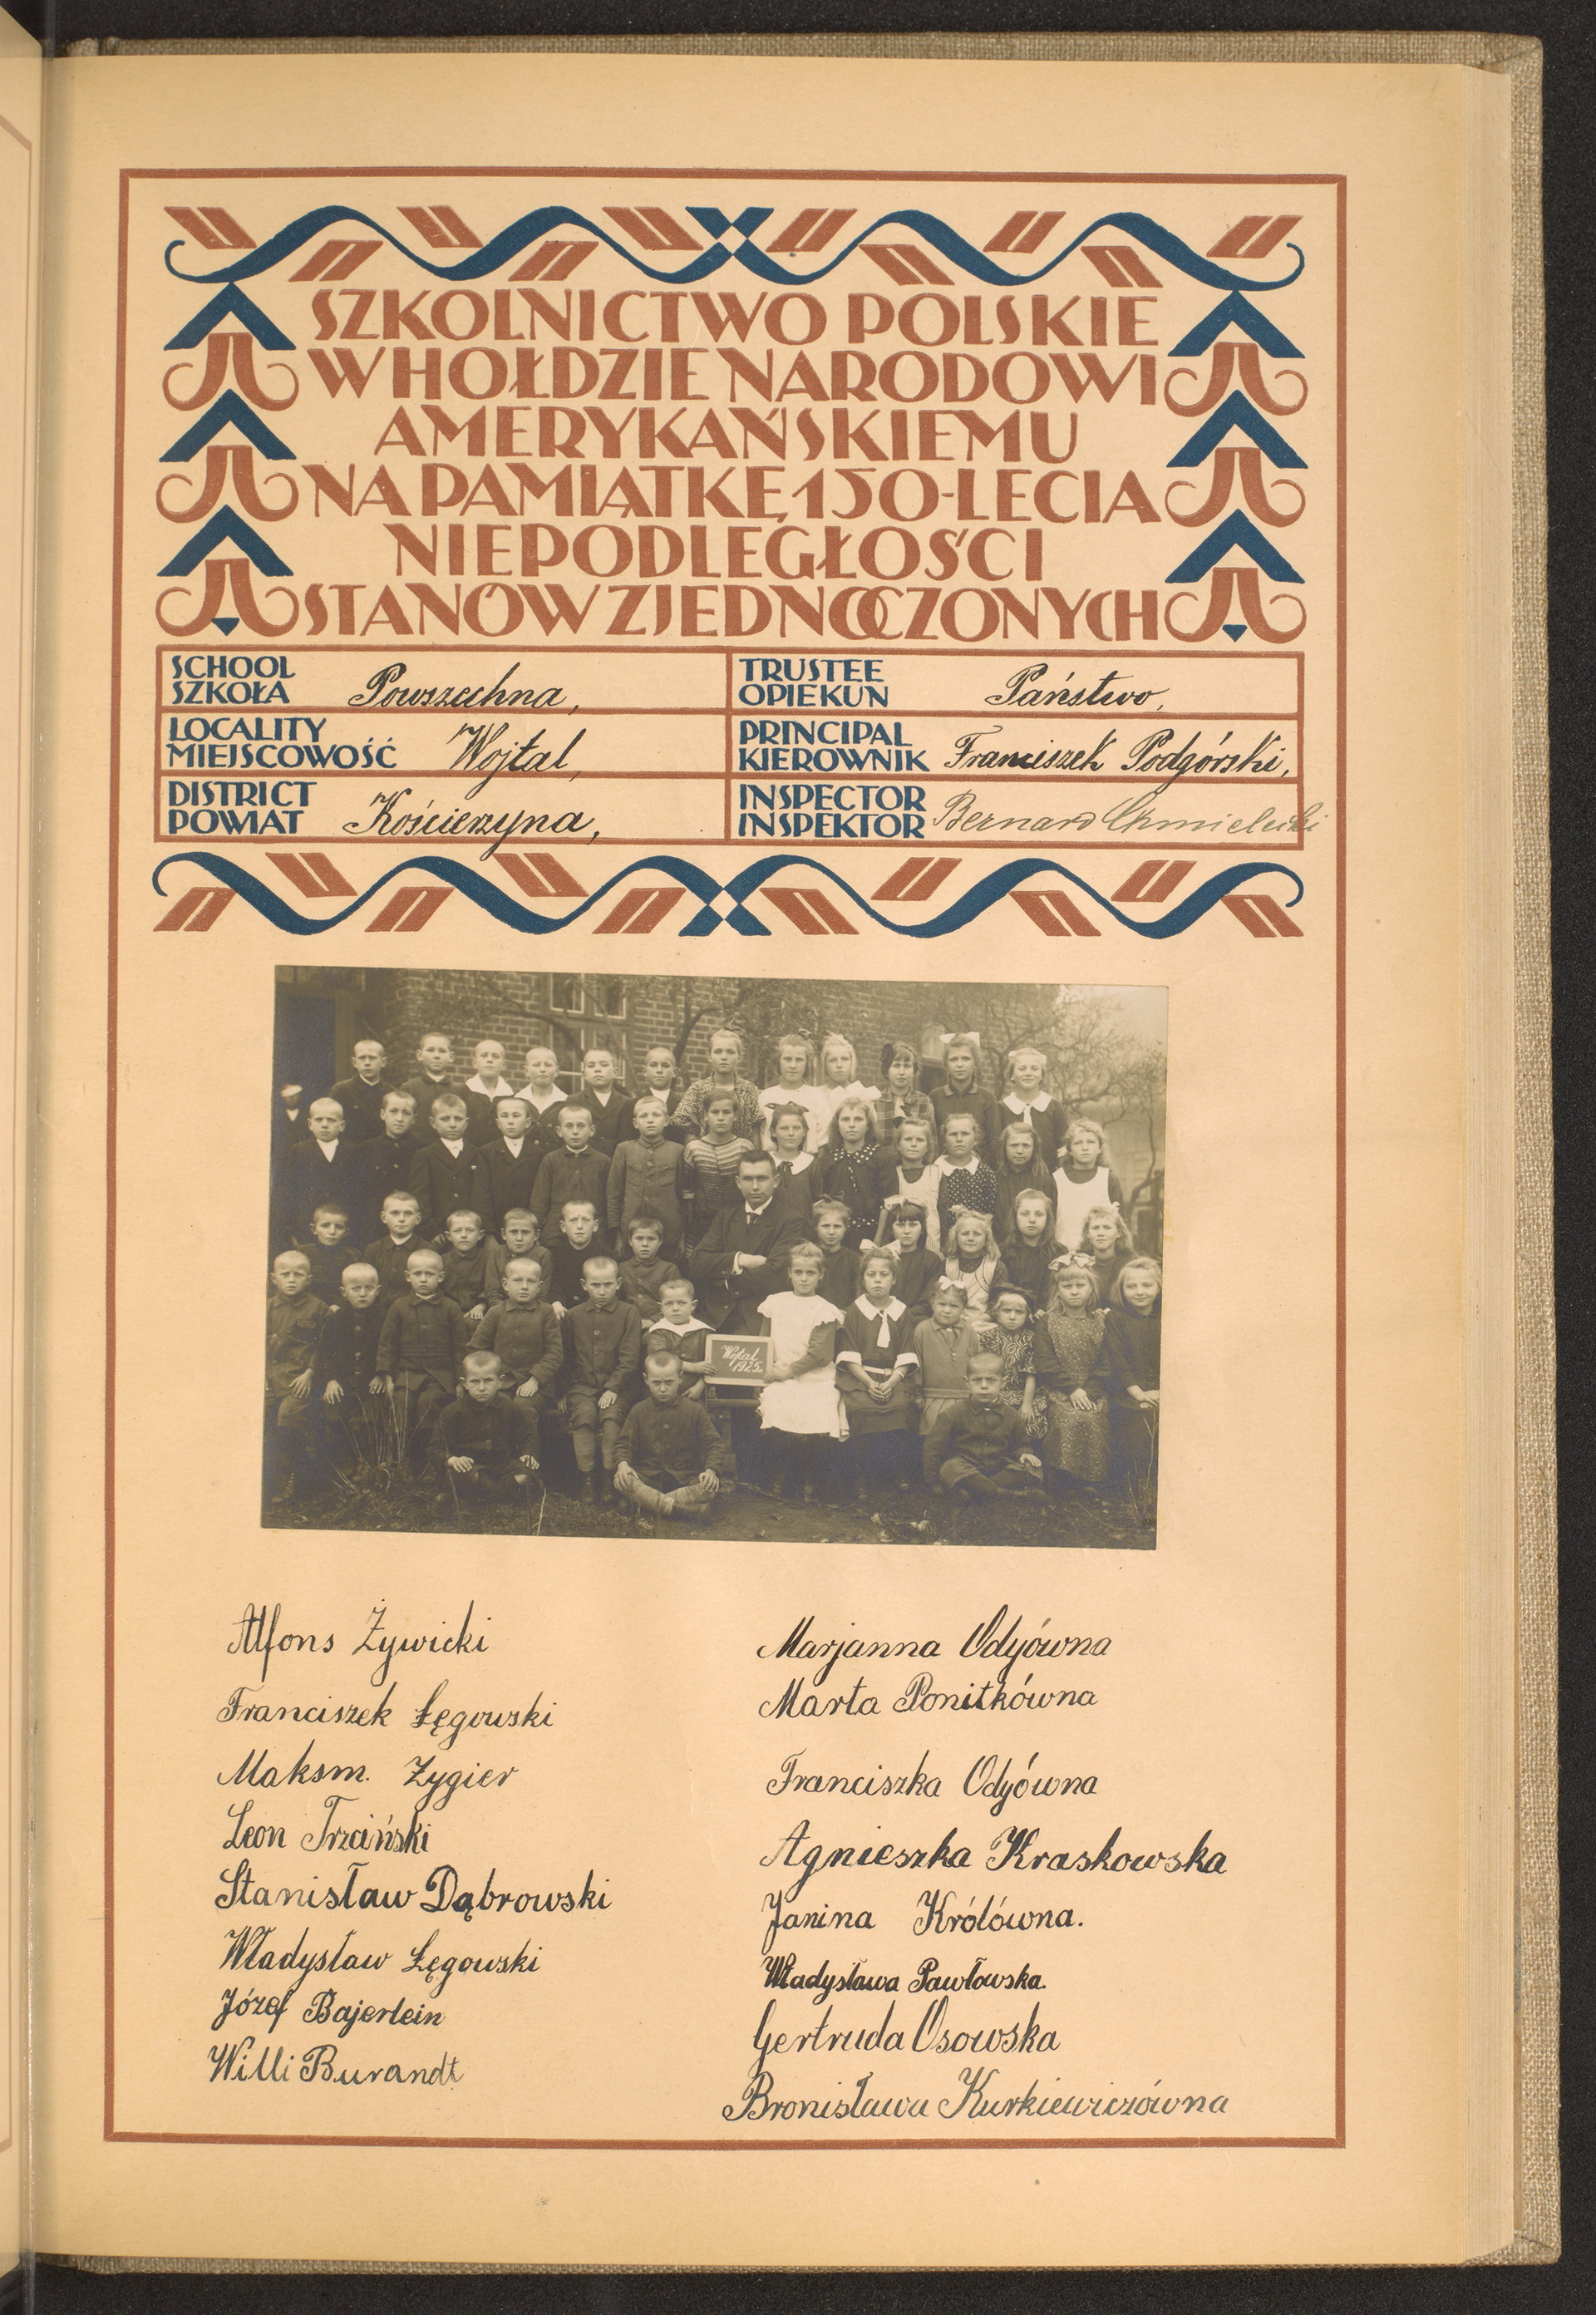 SZKOLNICTWO POLSKIE
W HOŁDZIE NARODOWI
AMERYKAŃSKIEMU
NA PAMIĄTKĘ 150-LECIA
NIEPODLEGŁOŚCI
STANÓW ZJEDNOCZONYCH
SCHOOL
SZKOŁA Powszechna,
TRUSTEE
OPIEKUN Państwo,
LOCALITY
MIEJSCOWOŚĆ Wojtal,
PRINCIPAL
KIEROWNIK Franciszek Podgórski,
DISTRICT
POWIAT Kościerzyna,
INSPECTOR
INSPEKTOR Bernard Chmielecki
Wojtal
1925.
Alfons Żywicki
Franciszek Łęgowski
Maksm. Zygier
Leon Trzciński
Stanisław Dąbrowski
Władysław Łęgowski
Józef Bajerlein
Willi Burandt
Marjanna Odyówna
Marta Ponitkówna
Franciszka Odyówna
Agnieszka Kraskowska
Janina Królówna.
Władysława Pawłowska.
Gertruda Osowska
Bronisława Kurkiewiczówna